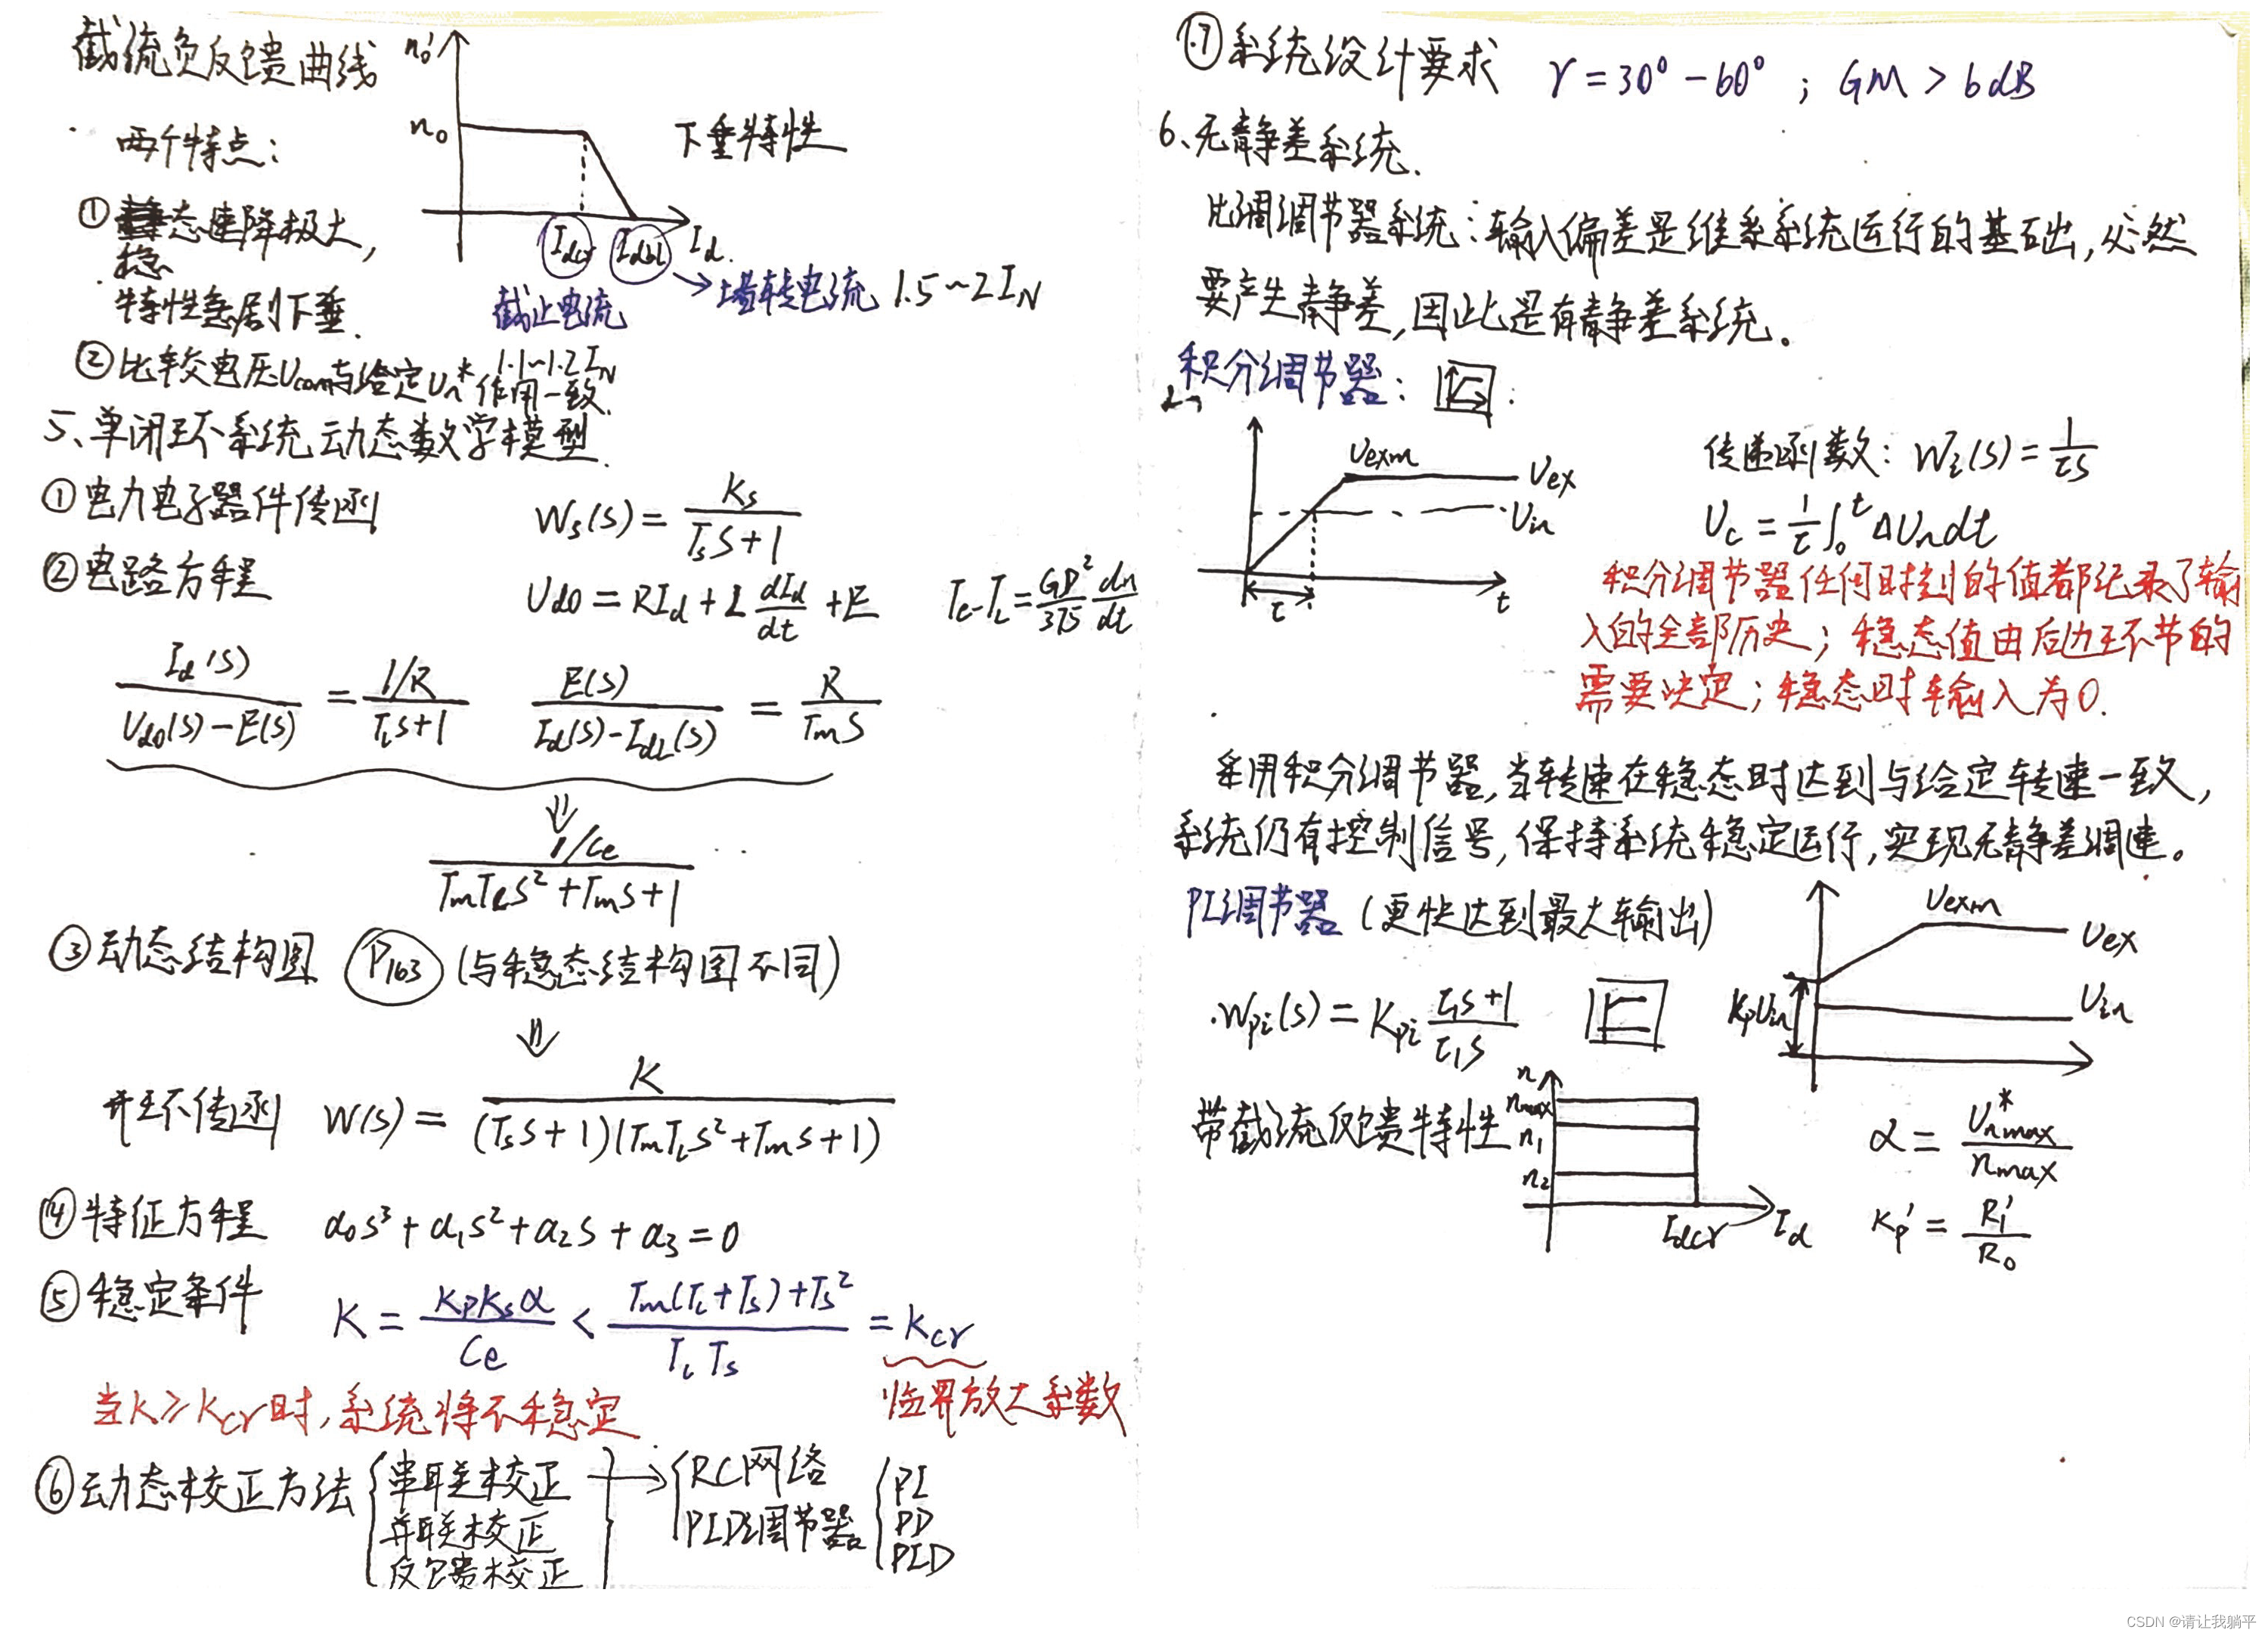 截流负反馈曲线
n₀'
n₀
下垂特性
两个特点:
① 稳态速降极大,
特性急剧下垂.
Idcr Idbl Id.
截止电流 → 堵转电流 1.5~2IN
1.1~1.2IN
② 比较电压Ucom与给定Un*作用一致.
5、单闭环系统动态数学模型.
① 电力电子器件传函 Ws(s) = Ks/(Tss+1)
② 电路方程 Ud0 = RId + L dId/dt + E Te-TL = GD²/375 dn/dt
Id(s)/(Ud0(s)-E(s)) = (1/R)/(Tls+1) E(s)/(Id(s)-IdL(s)) = R/(Tms)
⇓
(1/Ce)/(TmTls²+Tms+1)
③ 动态结构图 P163 (与稳态结构图不同)
⇓
开环传函 W(s) = K/((Tss+1)(TmTls²+Tms+1))
④ 特征方程 a₀s³+a₁s²+a₂s+a₃=0
⑤ 稳定条件 K = KpKsα/Ce < (Tm(Tl+Ts)+Ts²)/(TlTs) = Kcr
当K≥Kcr时,系统将不稳定 临界放大系数
⑥ 动态校正方法 { 串联校正 → { RC网络 { PI
并联校正 PID调节器 PD
反馈校正 PID
⑦ 系统设计要求 γ=30°-60° ; GM>6dB
6、无静差系统.
比调调节器系统:输入偏差是维系系统运行的基础,必然
要产生静差,因此是有静差系统。
积分调节器:
Uexm
Uex
Uin
τ t
传递函数: Wi(s) = 1/(τs)
Uc = 1/τ ∫₀ᵗ ΔUndt
积分调节器任何时刻的值都纪录了输
入的全部历史;稳态值由后边环节的
需要决定;稳态时输入为0.
采用积分调节器,当转速在稳态时达到与给定转速一致,
系统仍有控制信号,保持系统稳定运行,实现无静差调速。
PI调节器 (更快达到最大输出)
Uexm
Uex
Uin
KpUin
Wpi(s) = Kpi (τ₁s+1)/(τ₁s)
带截流反馈特性
n
nmax
n₁
n₂
Idcr Id
α = Unmax*/nmax
Kp' = R₁'/R₀
CSDN @请让我躺平